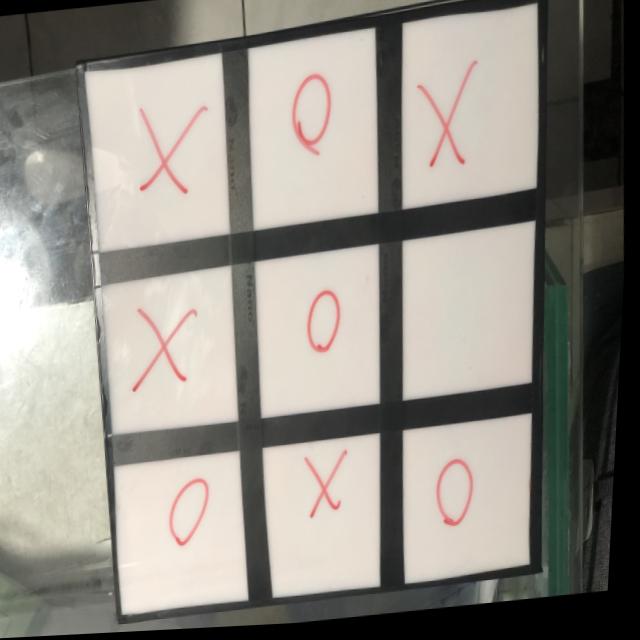 X O X
X O
O X O